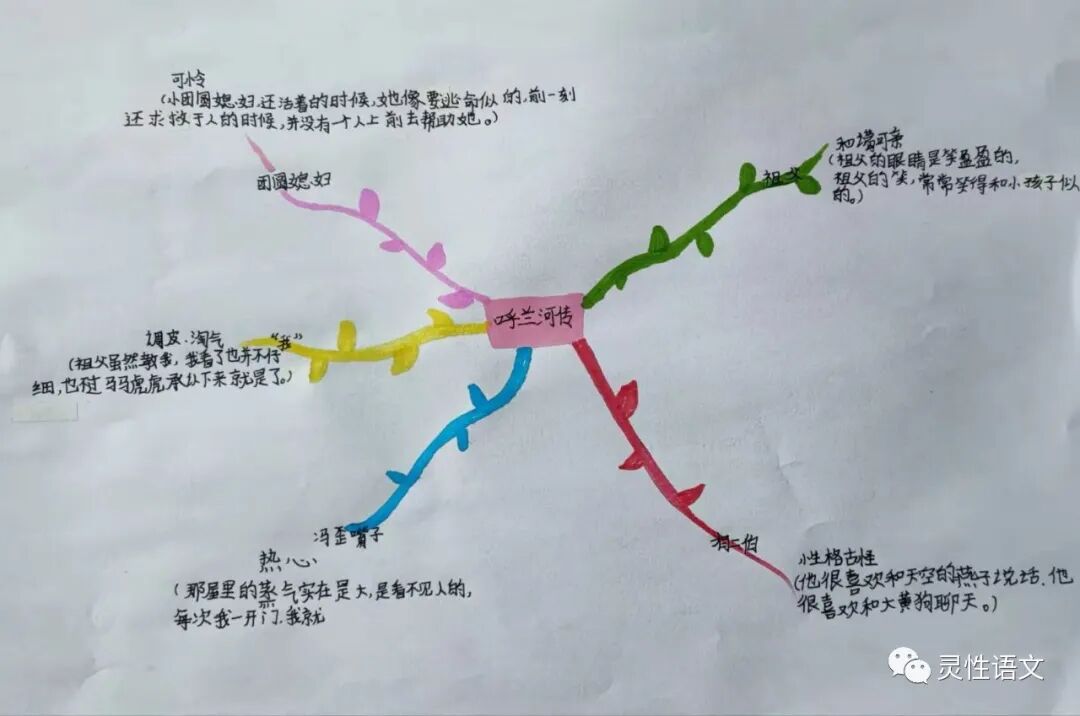 可怜
(小团圆媳妇还活着的时候,她像要逃命似的,前一刻
还求救于人的时候,并没有一个人上前去帮助她。)
团圆媳妇
和蔼可亲
(祖父的眼睛是笑盈盈的,
祖父的笑,常常笑得和小孩子似
的。)
祖父
呼兰河传
调皮、淘气
“我”
(祖父虽然教我,我看了也并不仔
细,也不过马马虎虎承认下来就是了。)
冯歪嘴子
热心
(那屋里的蒸气实在是大,是看不见人的,
每次我一开门,我就
有二伯
性格古怪
(他很喜欢和天空的燕子说话、他
很喜欢和大黄狗聊天。)
灵性语文